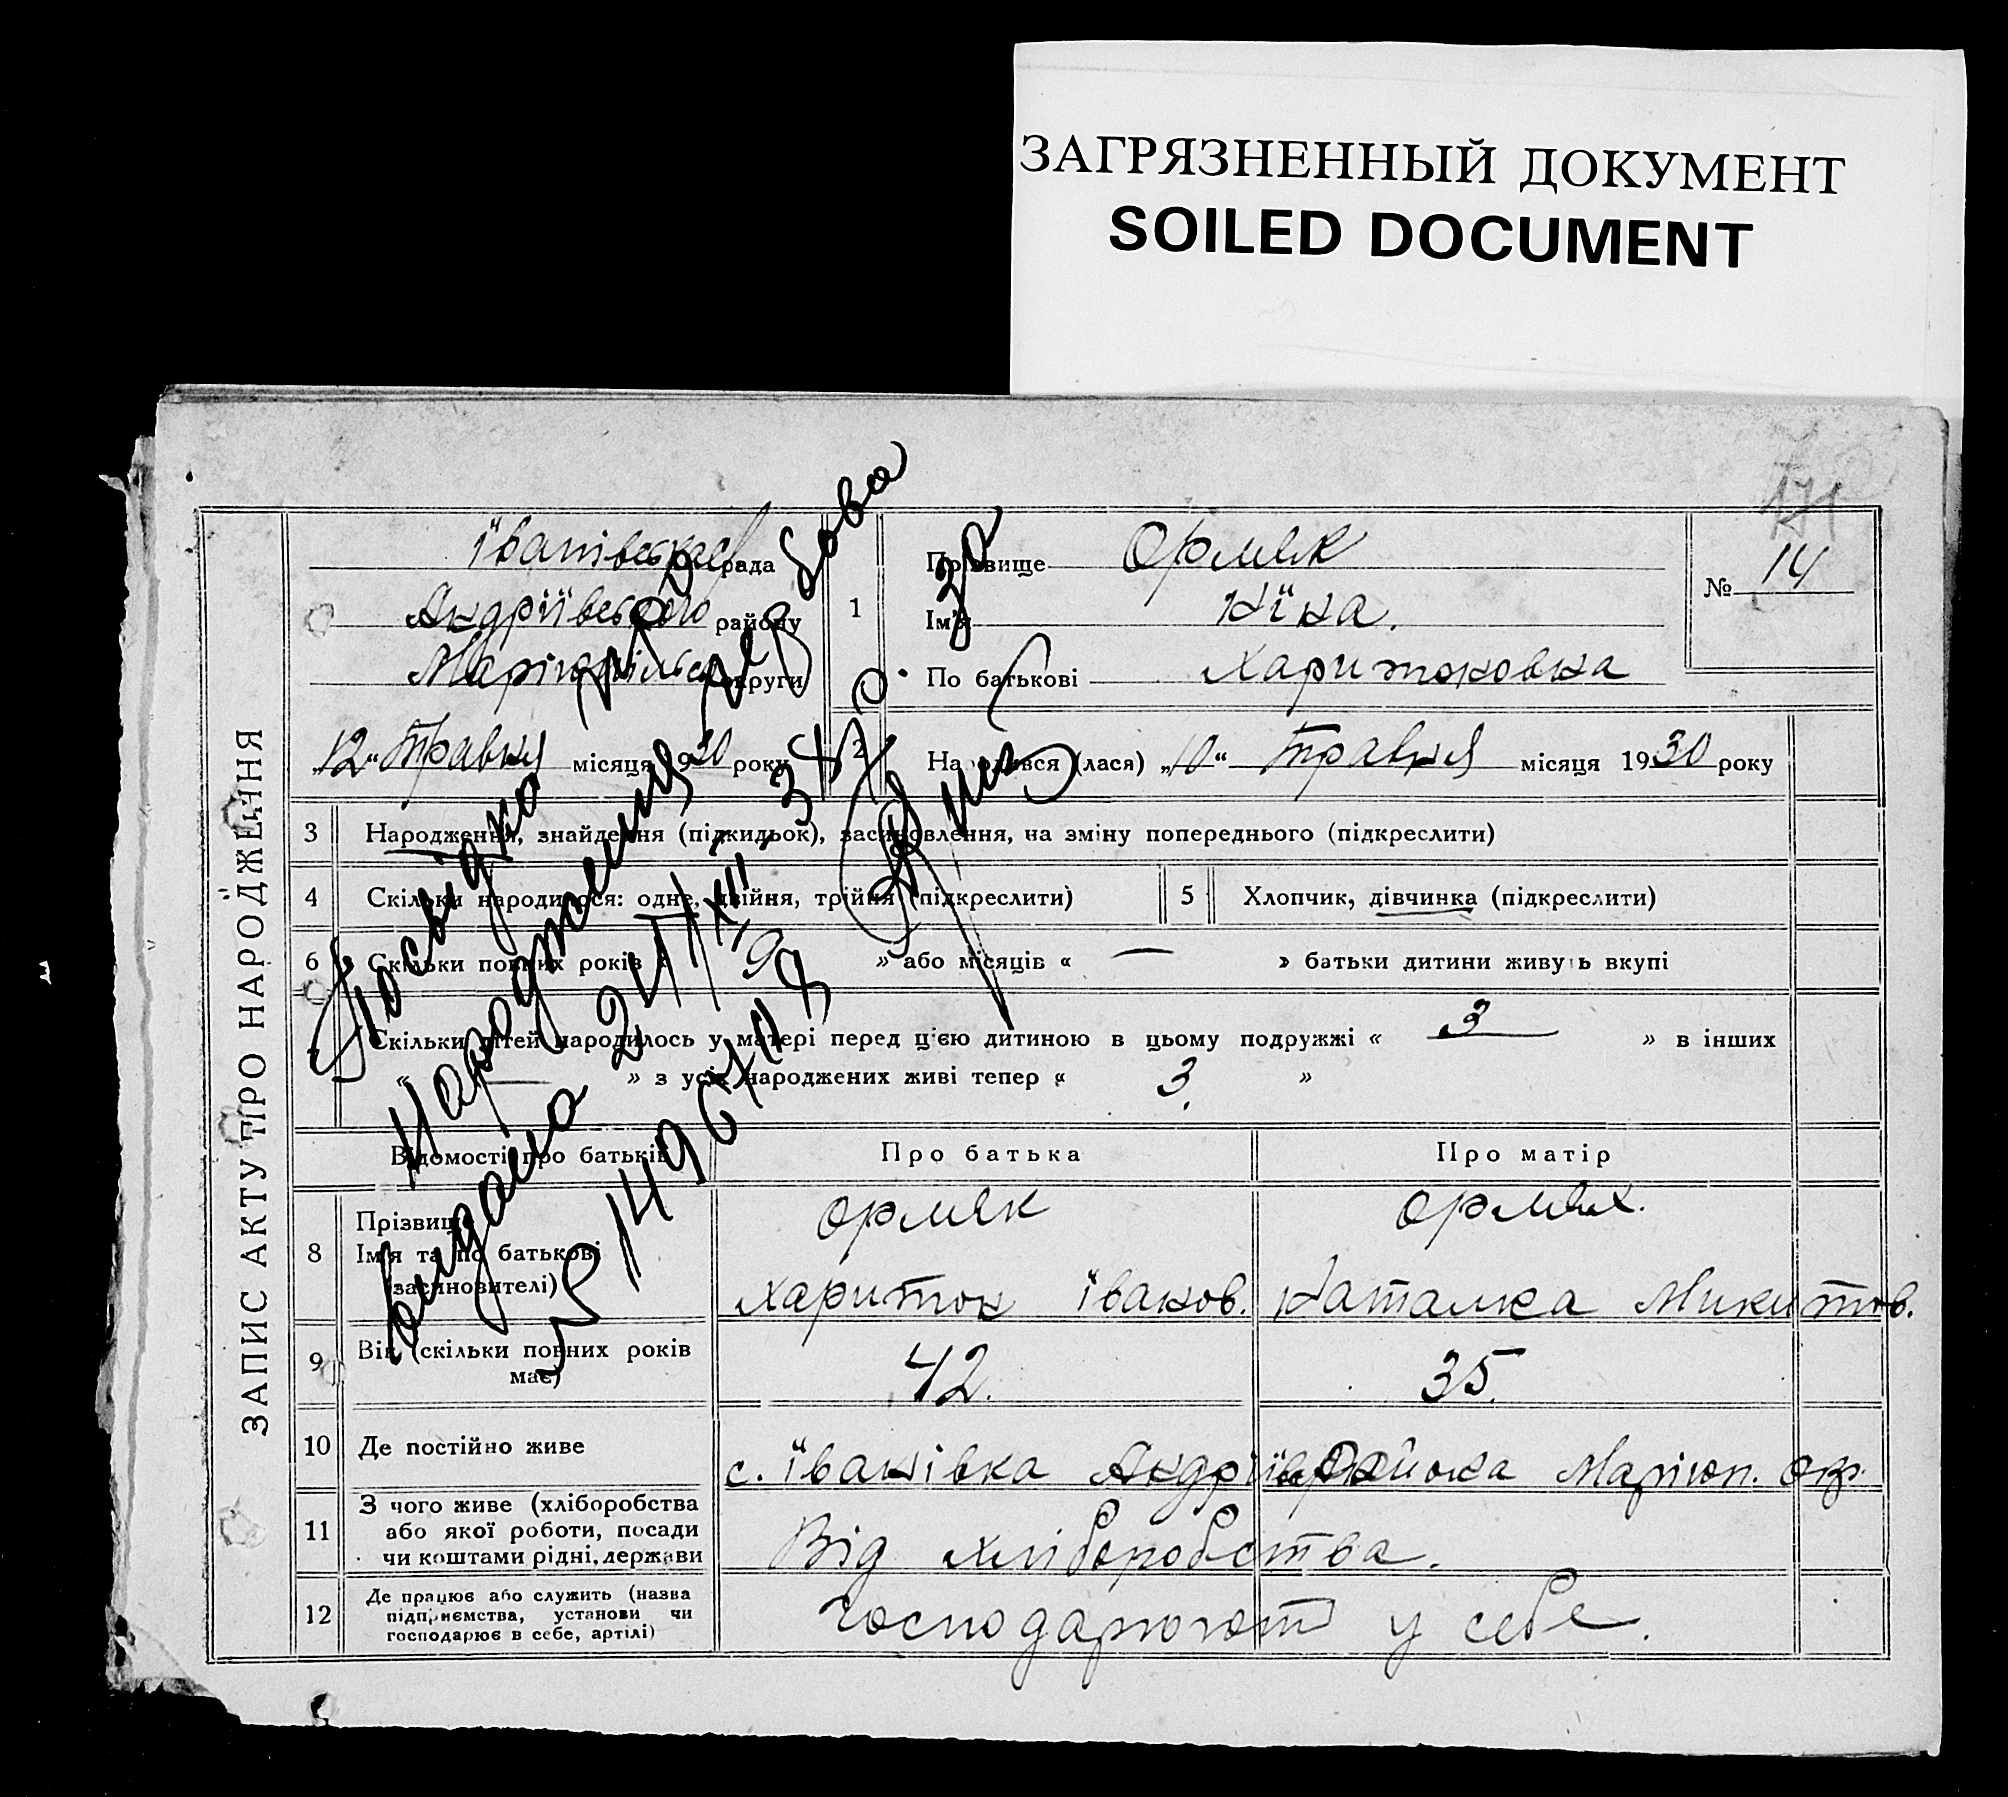 ЗАГРЯЗНЕННЫЙ ДОКУМЕНТ
SOILED DOCUMENT
171
ЗАПИС АКТУ ПРО НАРОДЖЕННЯ
Іванівська рада
Андріївського району
Маріюпільськ округи
„12“ травня місяця 1930 року
1
Прізвище Ормяк
Ім'я Ніна.
По батькові Харитоновна
№ 14
2 Народився (лася) „10“ травня місяця 1930 року
3 Народження, знайдення (підкидьок), засиновлення, на зміну попереднього (підкреслити)
4 Скільки народилося: одне, двійня, трійня (підкреслити)
5 Хлопчик, дівчинка (підкреслити)
6 Скільки повних років « 9 » або місяців « — » батьки дитини живуть вкупі
7 Скільки дітей народилось у матері перед цією дитиною в цьому подружжі « 3 » в інших
« — » з усіх народжених живі тепер « 3. »
Відомості про батьків Про батька Про матір
8 Прізвище
Ім'я та по батькові
(засиновителі)
Ормяк
Харитон Іванов.
Ормяк.
Наталка Микитов.
9 Вік (скільки повних років
має)
42.
35.
10 Де постійно живе
с. Іванівка Андріївск Района Маріюп. окр.
11 З чого живе (хліборобства
або якої роботи, посади
чи коштами рідні, держави
Від хліборобства.
12 Де працює або служить (назва
підприємства, установи чи
господарює в себе, артілі)
господарюют у себе.
народження
видано 24/XI